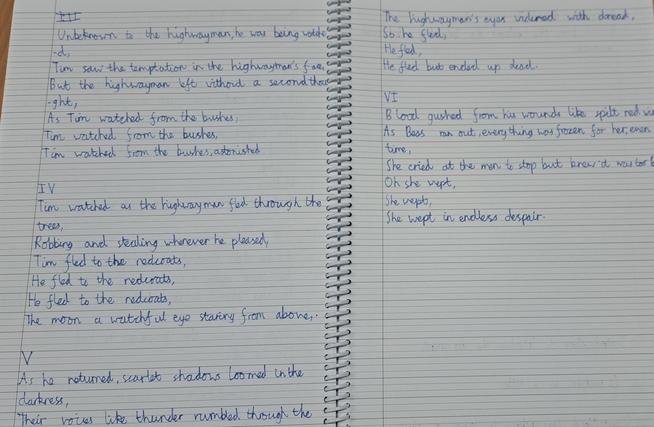 III
Unbeknown to the highwayman, he was being watche
-d,
Tim saw the temptation in the highwayman's face,
But the highwayman left without a second thou
-ght,
As Tim watched from the bushes,
Tim watched from the bushes,
Tim watched from the bushes, astonished
IV
Tim watched as the highwayman fled through the
trees,
Robbing and stealing wherever he pleased,
Tim fled to the redcoats,
He fled to the redcoats,
He fled to the redcoats,
The moon a watchful eye staring from above,.
V
As he returned, scarlet shadows loomed in the
darkness,
Their voices like thunder rumbled through the
The highwayman's eyes widened with dread,
So he fled,
He fled,
He fled but ended up dead.
VI
Blood gushed from his wounds like spilt red
As Bess ran out, everything was frozen for her, even
time,
She cried at the men to stop but knew it was too
Oh she wept,
She wept,
She wept in endless despair.